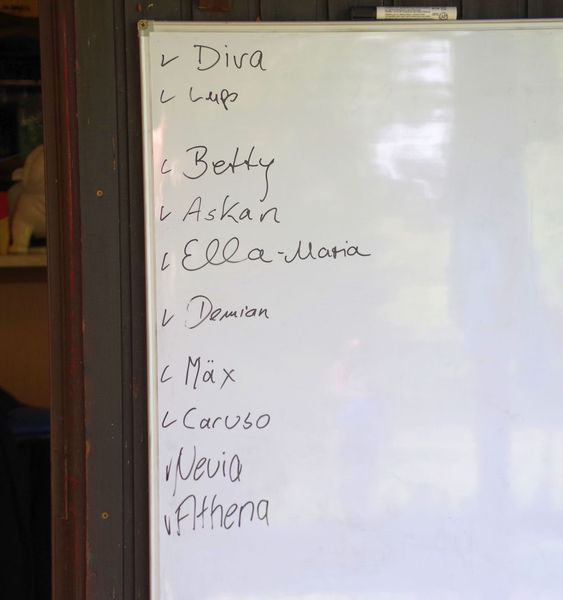 ✓ Diva
✓ Lups
✓ Betty
✓ Askan
✓ Ella-Maria
✓ Demian
✓ Mäx
✓ Caruso
✓ Nevia
✓ Athena